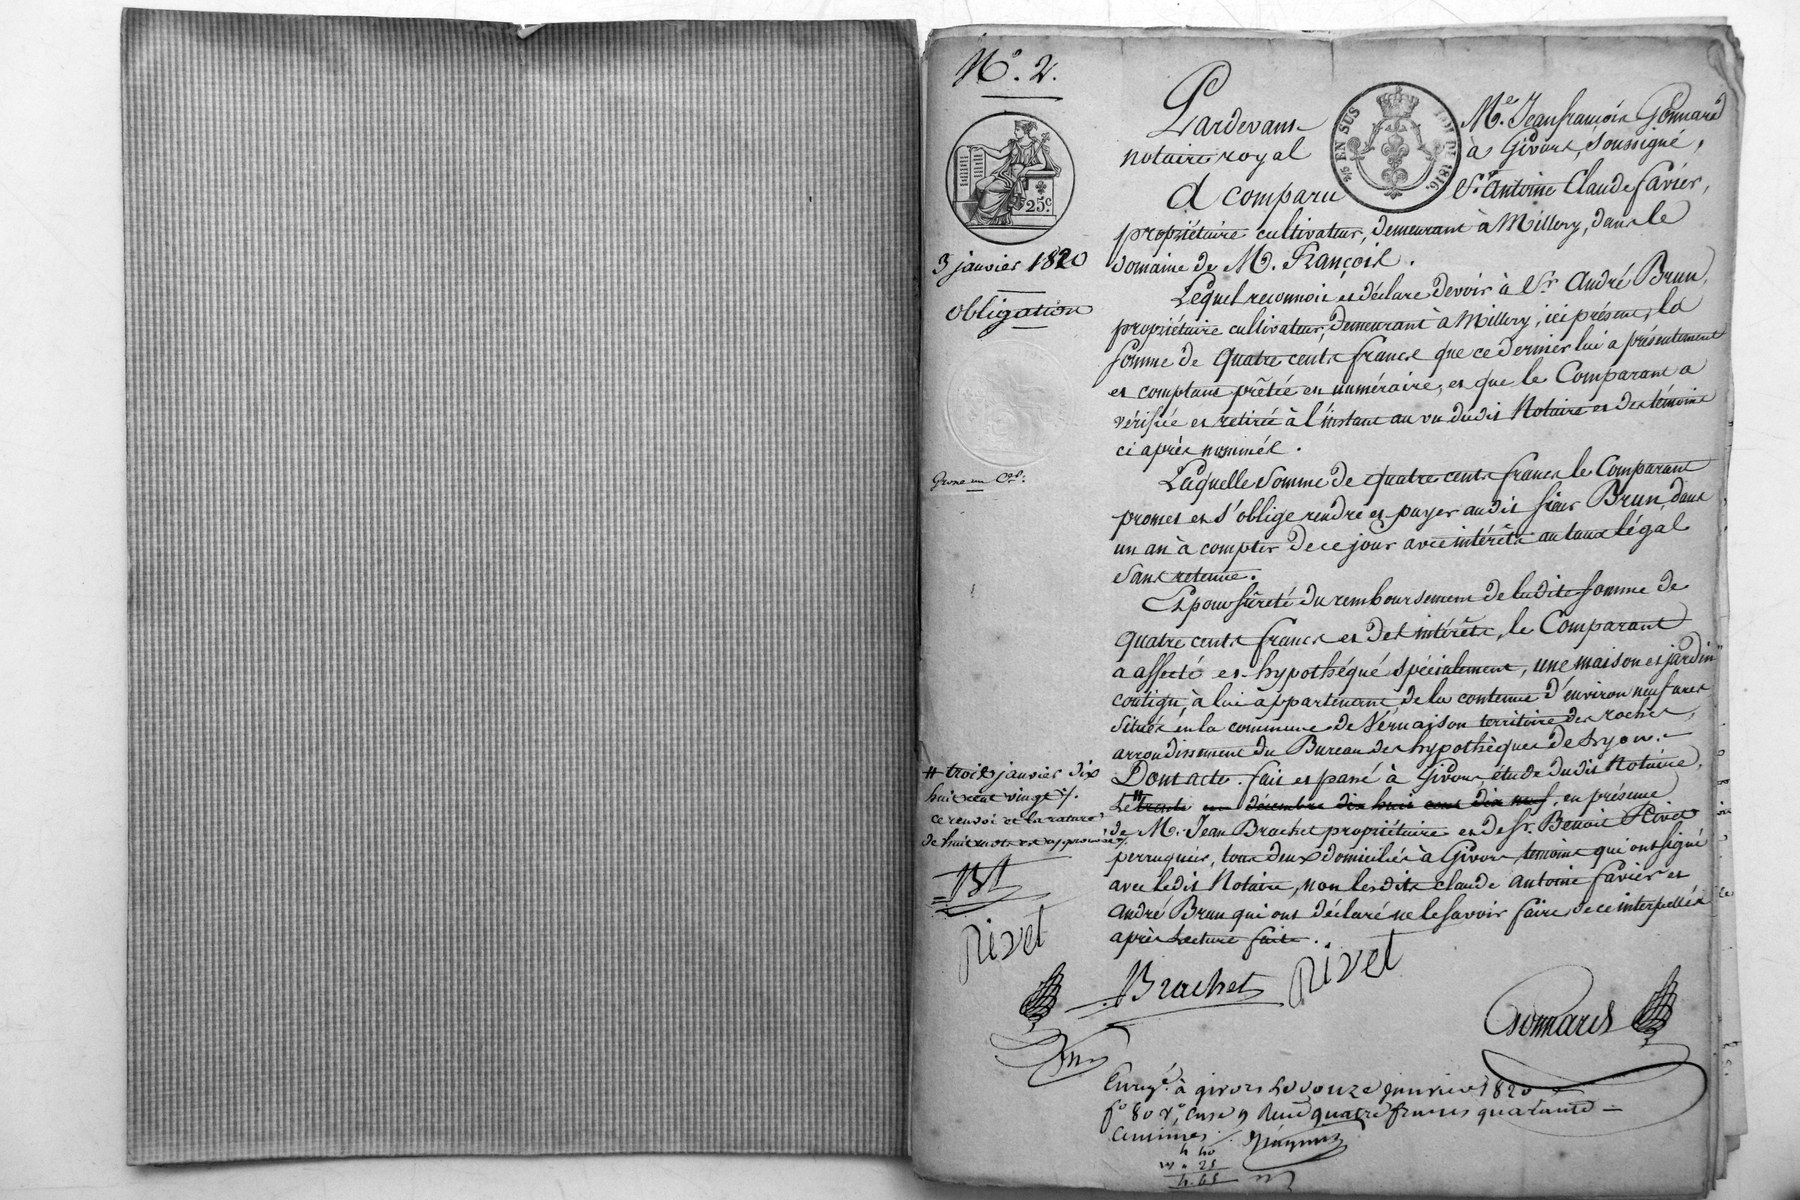 N°. 2.
25c.
3 janvier 1820
obligation
Grosse un
Pardevant Me. Jean françois Gonnard
notaire royal à Givors, soussigné,
A comparu Sr. Antoine Claude favier,
EN SUS
1816.
propriétaire cultivateur, demeurant à Millery, dans le
domaine de M. François.
Lequel reconnoit et déclare devoir à Sr. André Brun,
propriétaire cultivateur, demeurant à Millery, ici présent, la
somme de quatre cents francs que ce dernier lui a présentement
et comptant prêtée en numéraire, et que le Comparant a
vérifiée et retirée à l'instant au vu dudit Notaire et des témoins
ci après nommés.
Laquelle somme de quatre cents francs le Comparant
promet et s'oblige rendre et payer audit sieur Brun, dans
un an à compter de ce jour avec intérêts au taux légal
sans retenue.
Et pour sûreté du remboursement de ladite somme de
quatre cents francs et des intérêts, le Comparant
a affecté et hypothéqué spécialement, une maison et jardin
contigu, à lui appartenant de la contenue d'environ neuf ares
situés en la commune de Vernaison territoire des roches,
arrondissement du Bureau des hypothèques de Lyon.
Dont acte. fait et passé à Givors étude dudit Notaire,
Le # trente un décembre dix huit cent dix neuf, en présence
de M. Jean Brachet propriétaire et de Sr. Benoit Rivet
perruquier, tous deux domiciliés à Givors, témoins qui ont signé
avec ledit Notaire, non lesdits claude antoine favier et
andré Brun qui ont déclaré ne le savoir faire de ce interpellés
après Lecture faite.
# trois janvier dix
huit cent vingt ./.
ce renvoi et la rature
de huit mots est approuvée ./.
Rivet
Brachet
Rivet
Gonnard
Enregé. à givors le onze janvier 1820
fo 80 Ro, Case 9 Reçu quatre francs quarante
Centimes.
4 40
25
4.65